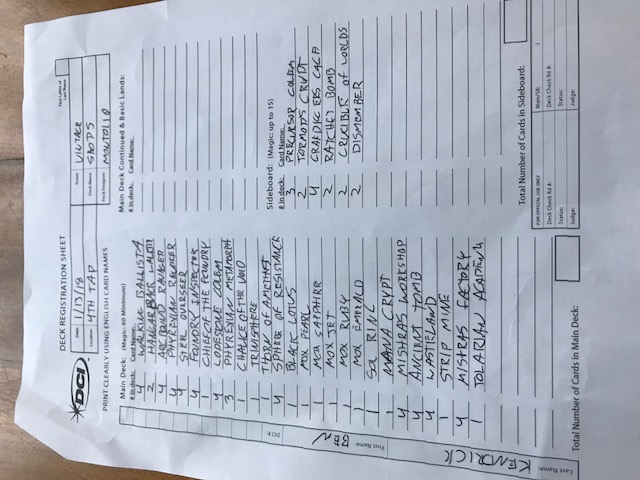 DECK REGISTRATION SHEET
First Letter of
Last Name
DCI
Date: 1/13/18
Event: VINTAGE
Location: 4TH TAP
Deck Name: SHOPS
Deck Designer: MONTOLIO
PRINT CLEARLY USING ENGLISH CARD NAMES
Main Deck: (Magic: 60 Minimum)
# in deck: Card Name:
4 WALKING BALLISTA
2 HANGARBACK WALKER
4 ARCBOUND RAVAGER
4 PHYREXIAN REVOKER
4 STEEL OVERSEER
4 FOUNDRY INSPECTOR
1 CHIEF OF THE FOUNDRY
4 LODESTONE GOLEM
3 PHYREXIAN METAMORPH
1 CHALICE OF THE VOID
1 TRINISPHERE
1 THORN OF AMETHST
4 SPHERE OF RESISTANCE
1 BLACK LOTUS
1 MOX PEARL
1 MOX SAPPHIRE
1 MOX JET
1 MOX RUBY
1 MOX EMERALD
1 SOL RING
1 MANA CRYPT
4 MISHRA'S WORKSHOP
4 ANCIENT TOMB
4 WASTELAND
1 STRIP MINE
4 MISHRAS FACTORY
1 TOLARIAN ACADEMY
Total Number of Cards in Main Deck:
Main Deck Continued & Basic Lands:
# in deck: Card Name:
Sideboard: (Magic: up to 15)
# in deck: Card Name:
3 PRECURSOR GOLEM
2 TORMODS CRYPT
4 GRAFDIGGERS CAGE
2 RATCHET BOMB
2 CRUCIBLE OF WORLDS
2 DISMEMBER
Total Number of Cards in Sideboard:
FOR OFFICIAL USE ONLY
Main/SB: /
Deck Check Rd #:
Deck Check Rd #:
Status:
Status:
Judge:
Judge:
DCI #:
First Name: BEN
Last Name: KENDRICK